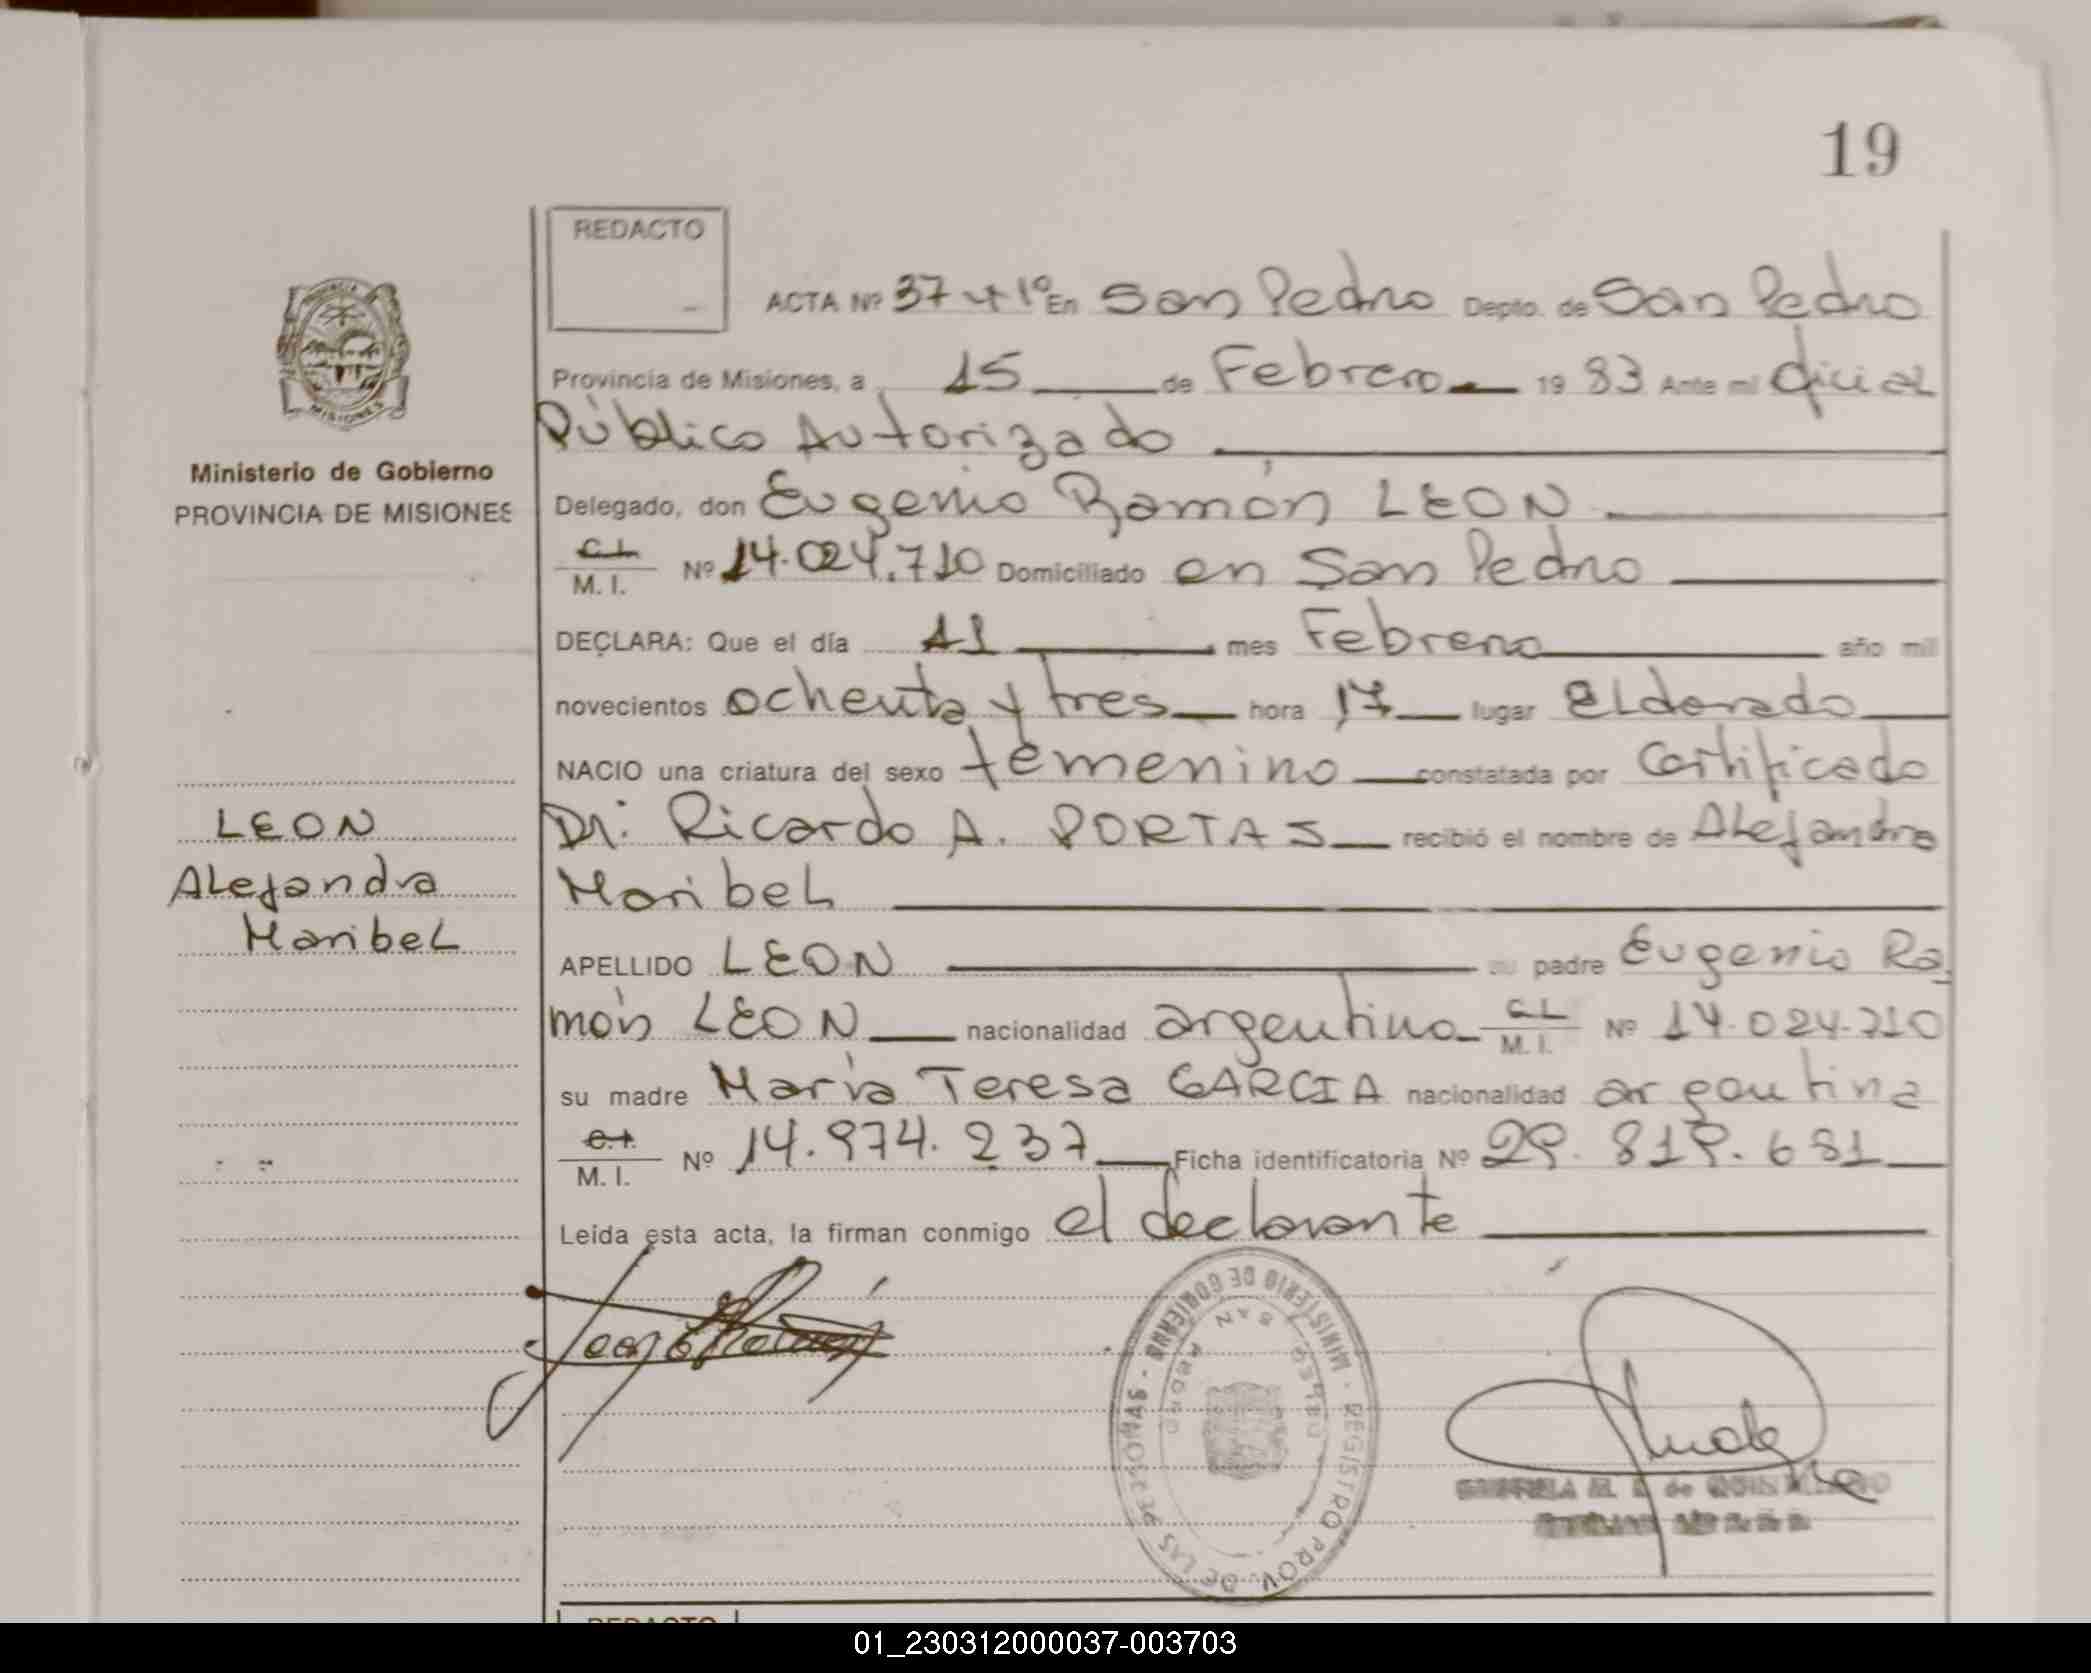 19
REDACTO
ACTA Nº 37 y 1º En San Pedro Depto. de San Pedro
Provincia de Misiones, a 15 de Febrero 19 83 Ante mi Oficial
Público Autorizado
Ministerio de Gobierno
PROVINCIA DE MISIONES
Delegado, don Eugenio Ramón LEON
C.I. M. I. Nº 14.024.710 Domiciliado en San Pedro
DECLARA: Que el día 11 mes Febrero año mil
novecientos ochenta y tres hora 17 lugar ELdorado
NACIO una criatura del sexo femenino constatada por Certificado
Dr. Ricardo A. PORTAS recibió el nombre de ALejandra
MaribeL
LEON
ALejandra
MaribeL
APELLIDO LEON su padre Eugenio Ra
món LEON nacionalidad argentino C.I. M. I. Nº 14.024.710
su madre María Teresa GARCIA nacionalidad argentina
C.I. M. I. Nº 14.974.237 Ficha identificatoria Nº 29.819.681
Leída esta acta, la firman conmigo el declarante
MINISTERIO DE GOBIERNO - REGISTRO PROV. DE LAS PERSONAS
SAN PEDRO
REDACTO
01_230312000037-003703